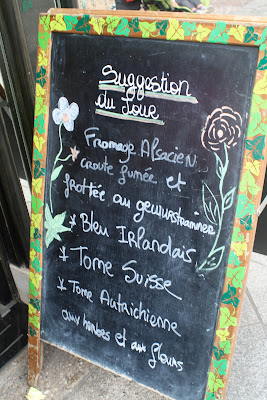 Suggestion
du Jour
Fromage Alsacien
croute fumée et
frottée au gewurstraminer
* Bleu Irlandais
* Tome Suisse
* Tome Autrichienne
aux herbes et aux fleurs